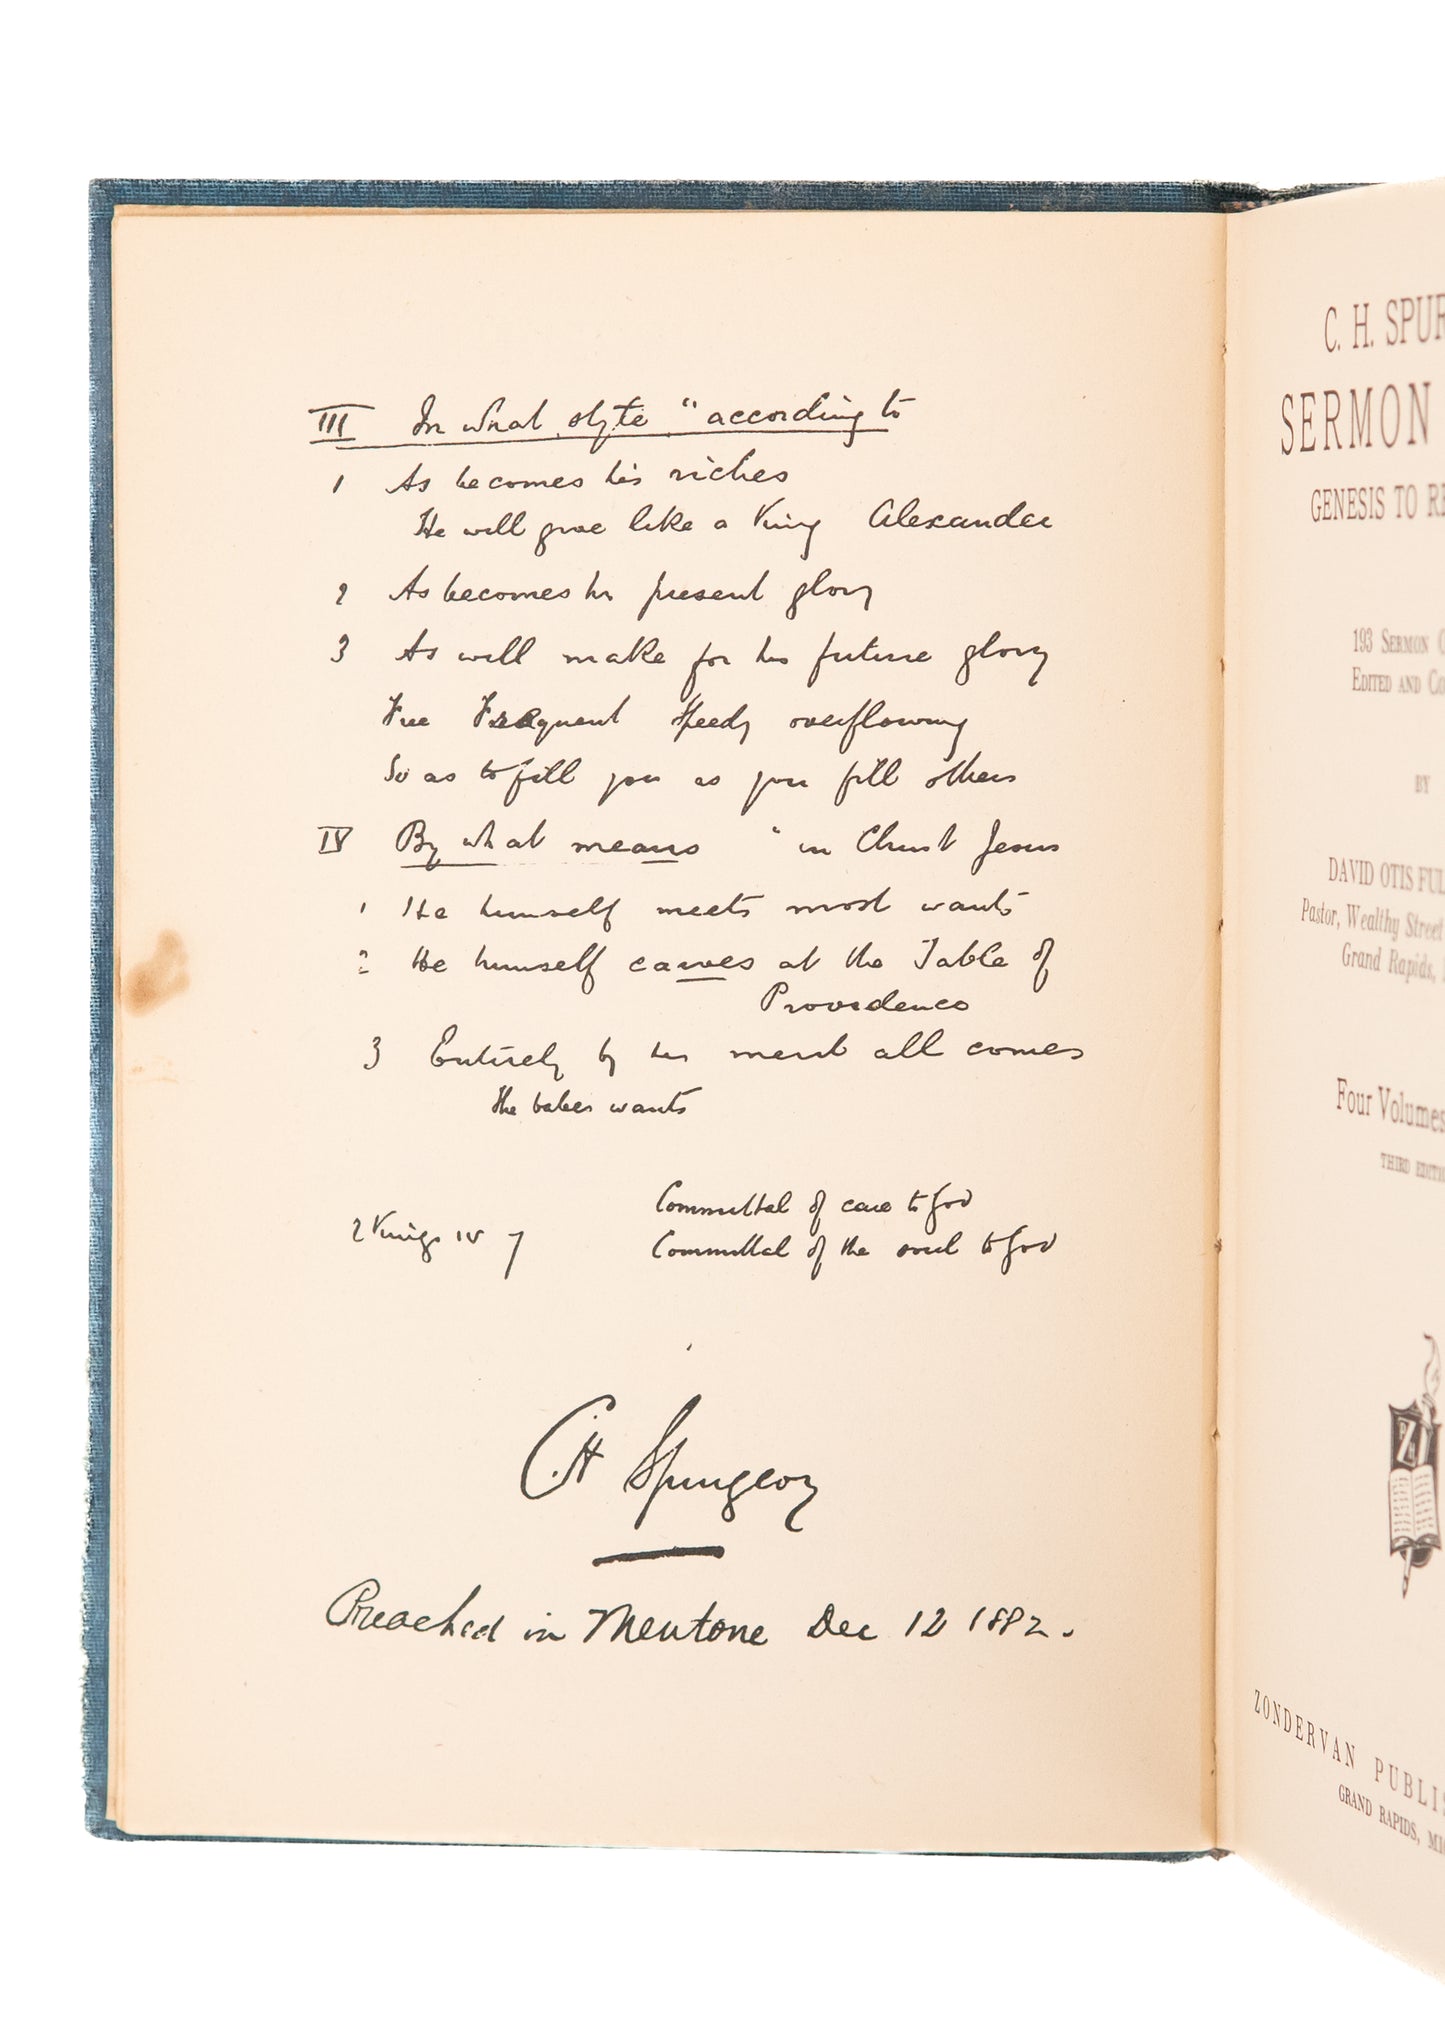 III In what style "according to
1 As becomes his riches
He will give like a King Alexander
2 As becomes his present glory
3 As will make for his future glory
Free Frequent Speedy overflowing
So as to fill you as you fill others
IV By what means "in Christ Jesus
1 He himself meets most wants
2 He himself carves at the Table of
Providence
3 Entirely by his merit all comes
The wants
2 Kings IV 7
Committal of care to God
Committal of the soul to God
CH Spurgeon
Preached in Mentone Dec 12 1882.
C. H. SPUR
SERMON
GENESIS TO RE
193 SERMON O
EDITED AND CO
BY
DAVID OTIS FUL
Pastor, Wealthy Street
Grand Rapids,
Four Volumes
THIRD EDITI
Z
ZONDERVAN PUBLIS
GRAND RAPIDS, MI